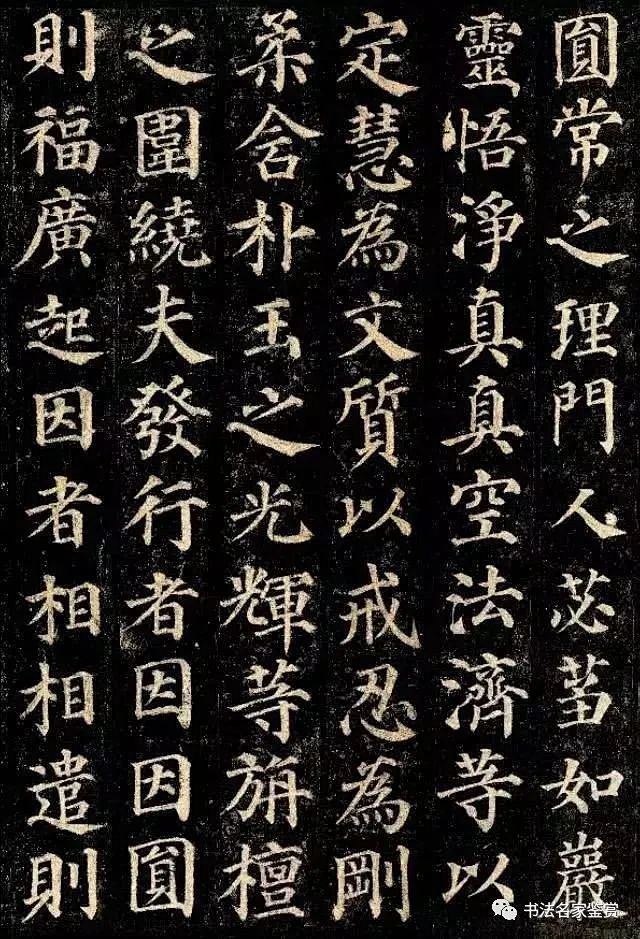 圓常之理門人苾蒭如巖
靈悟淨真真空法濟等以
定慧為文質以戒忍為剛
柔含朴玉之光輝等旃檀
之圍繞夫發行者因因圓
則福廣起因者相相遣則
书法名家鉴赏